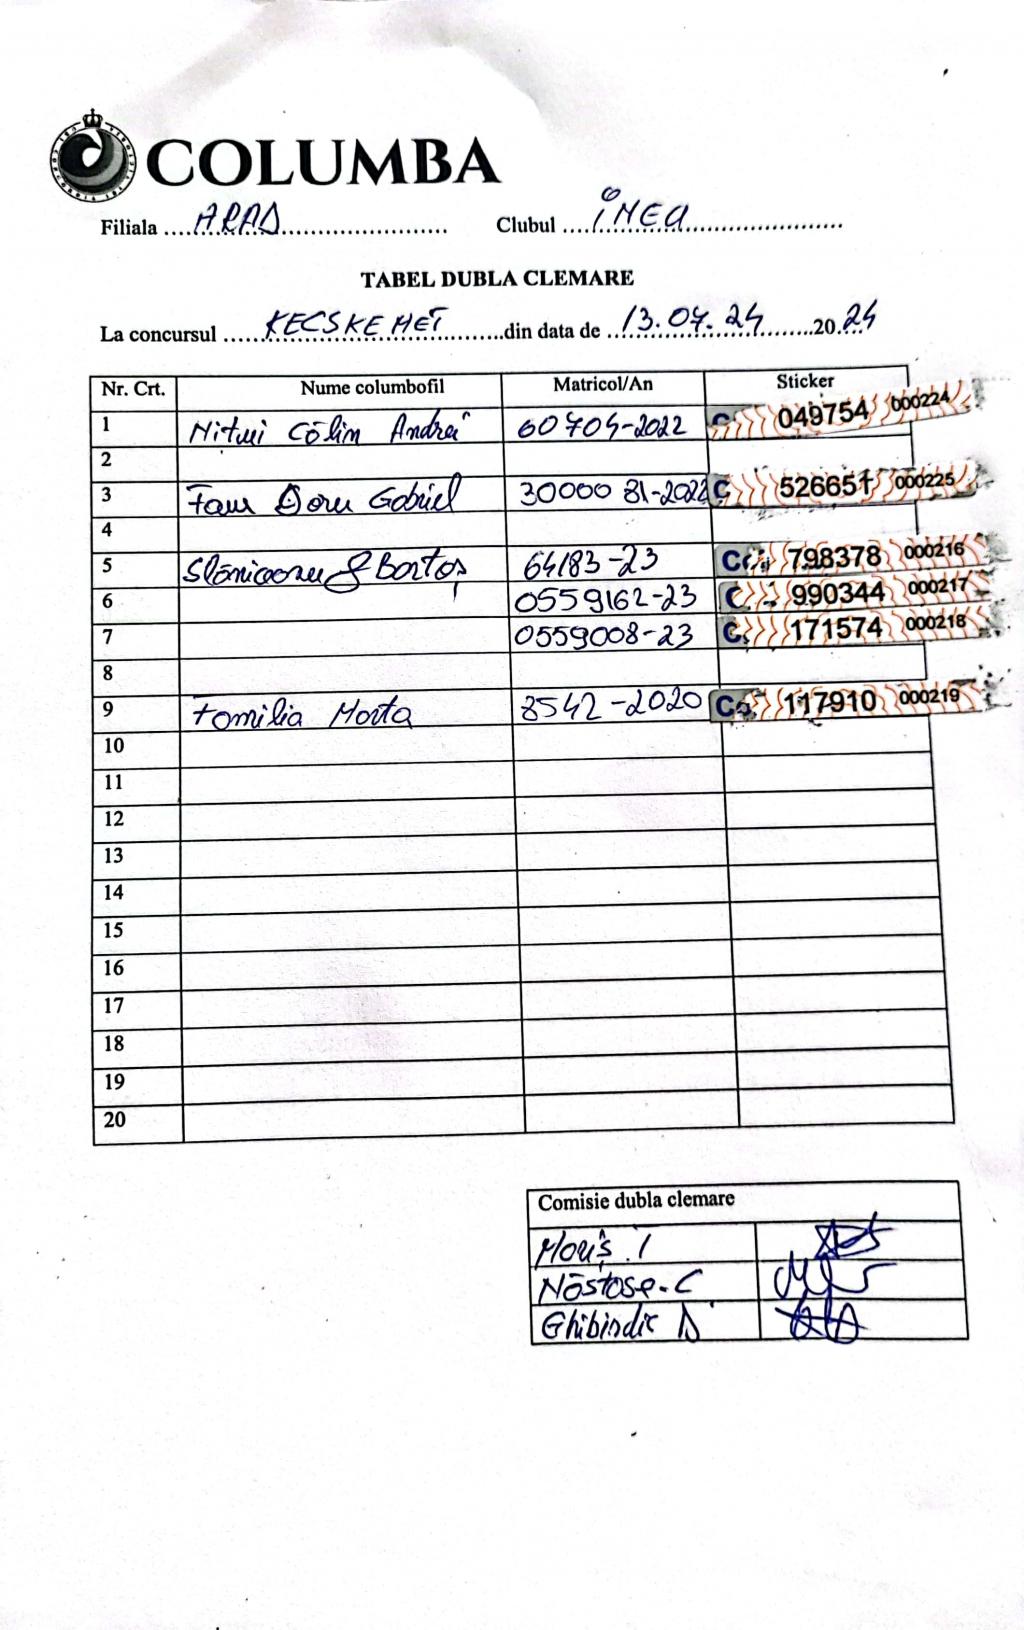 COLUMBA
Filiala ....ARAD.......................... Clubul ....INEU........................
TABEL DUBLA CLEMARE
La concursul ......KECSKEMET.........din data de ..13.07.24........20.24
Nr. Crt. Nume columbofil Matricol/An Sticker
1 Călin Andrei 60704-2022 049754 000224
2
3 Faur Doru Gabriel 3000081-2022 C 526651 000225
4
5 & Bortoș 64183-23 798378 000216
6 0559162-23 C 990344 000217
7 0559008-23 C 171574 000218
8
9 Familia Morta 8542-2020 Co 117910 000219
10
11
12
13
14
15
16
17
18
19
20
Comisie dubla clemare
T
Năstase C
Ghibindic D